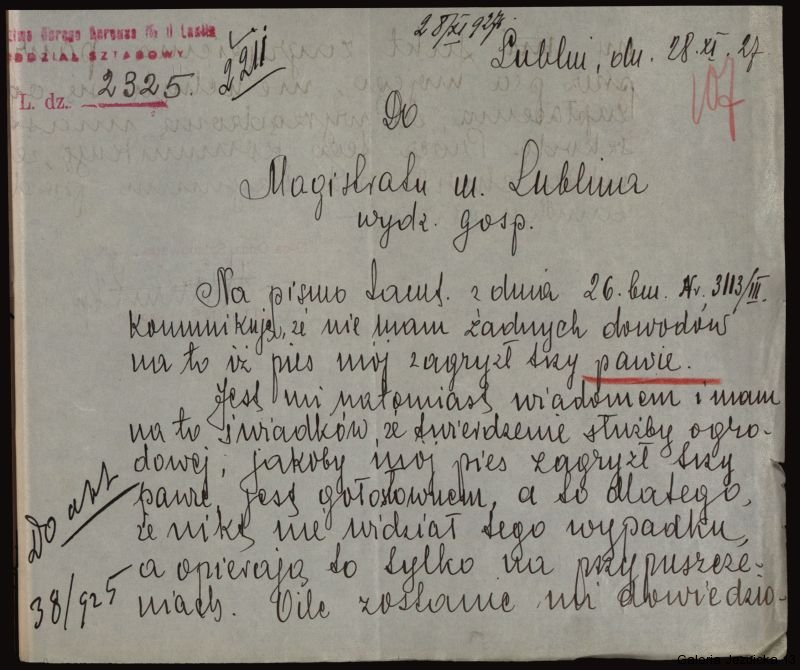 28/XI 927r.
Lublin, dn. 28. XI. 27
ODDZIAŁ SZTABOWY
L. dz. 2325.
107
Do
Magistratu m. Lublina
wydz. gosp.
Na pismo tamt. z dnia 26. bm. Nr. 3113/III.
komunikuję, że nie mam żadnych dowodów
na to iż pies mój zagryzł trzy pawie.
Jest mi natomiast wiadomem i mam
na to świadków, że twierdzenie służby ogro-
dowej, jakoby mój pies zagryzł trzy
pawie, jest gołosłownem, a to dlatego,
że nikt nie widział tego wypadku,
a opierają to tylko na przypuszcze-
niach. O ile zostanie mi dowiedzio-
Do akt
38/925